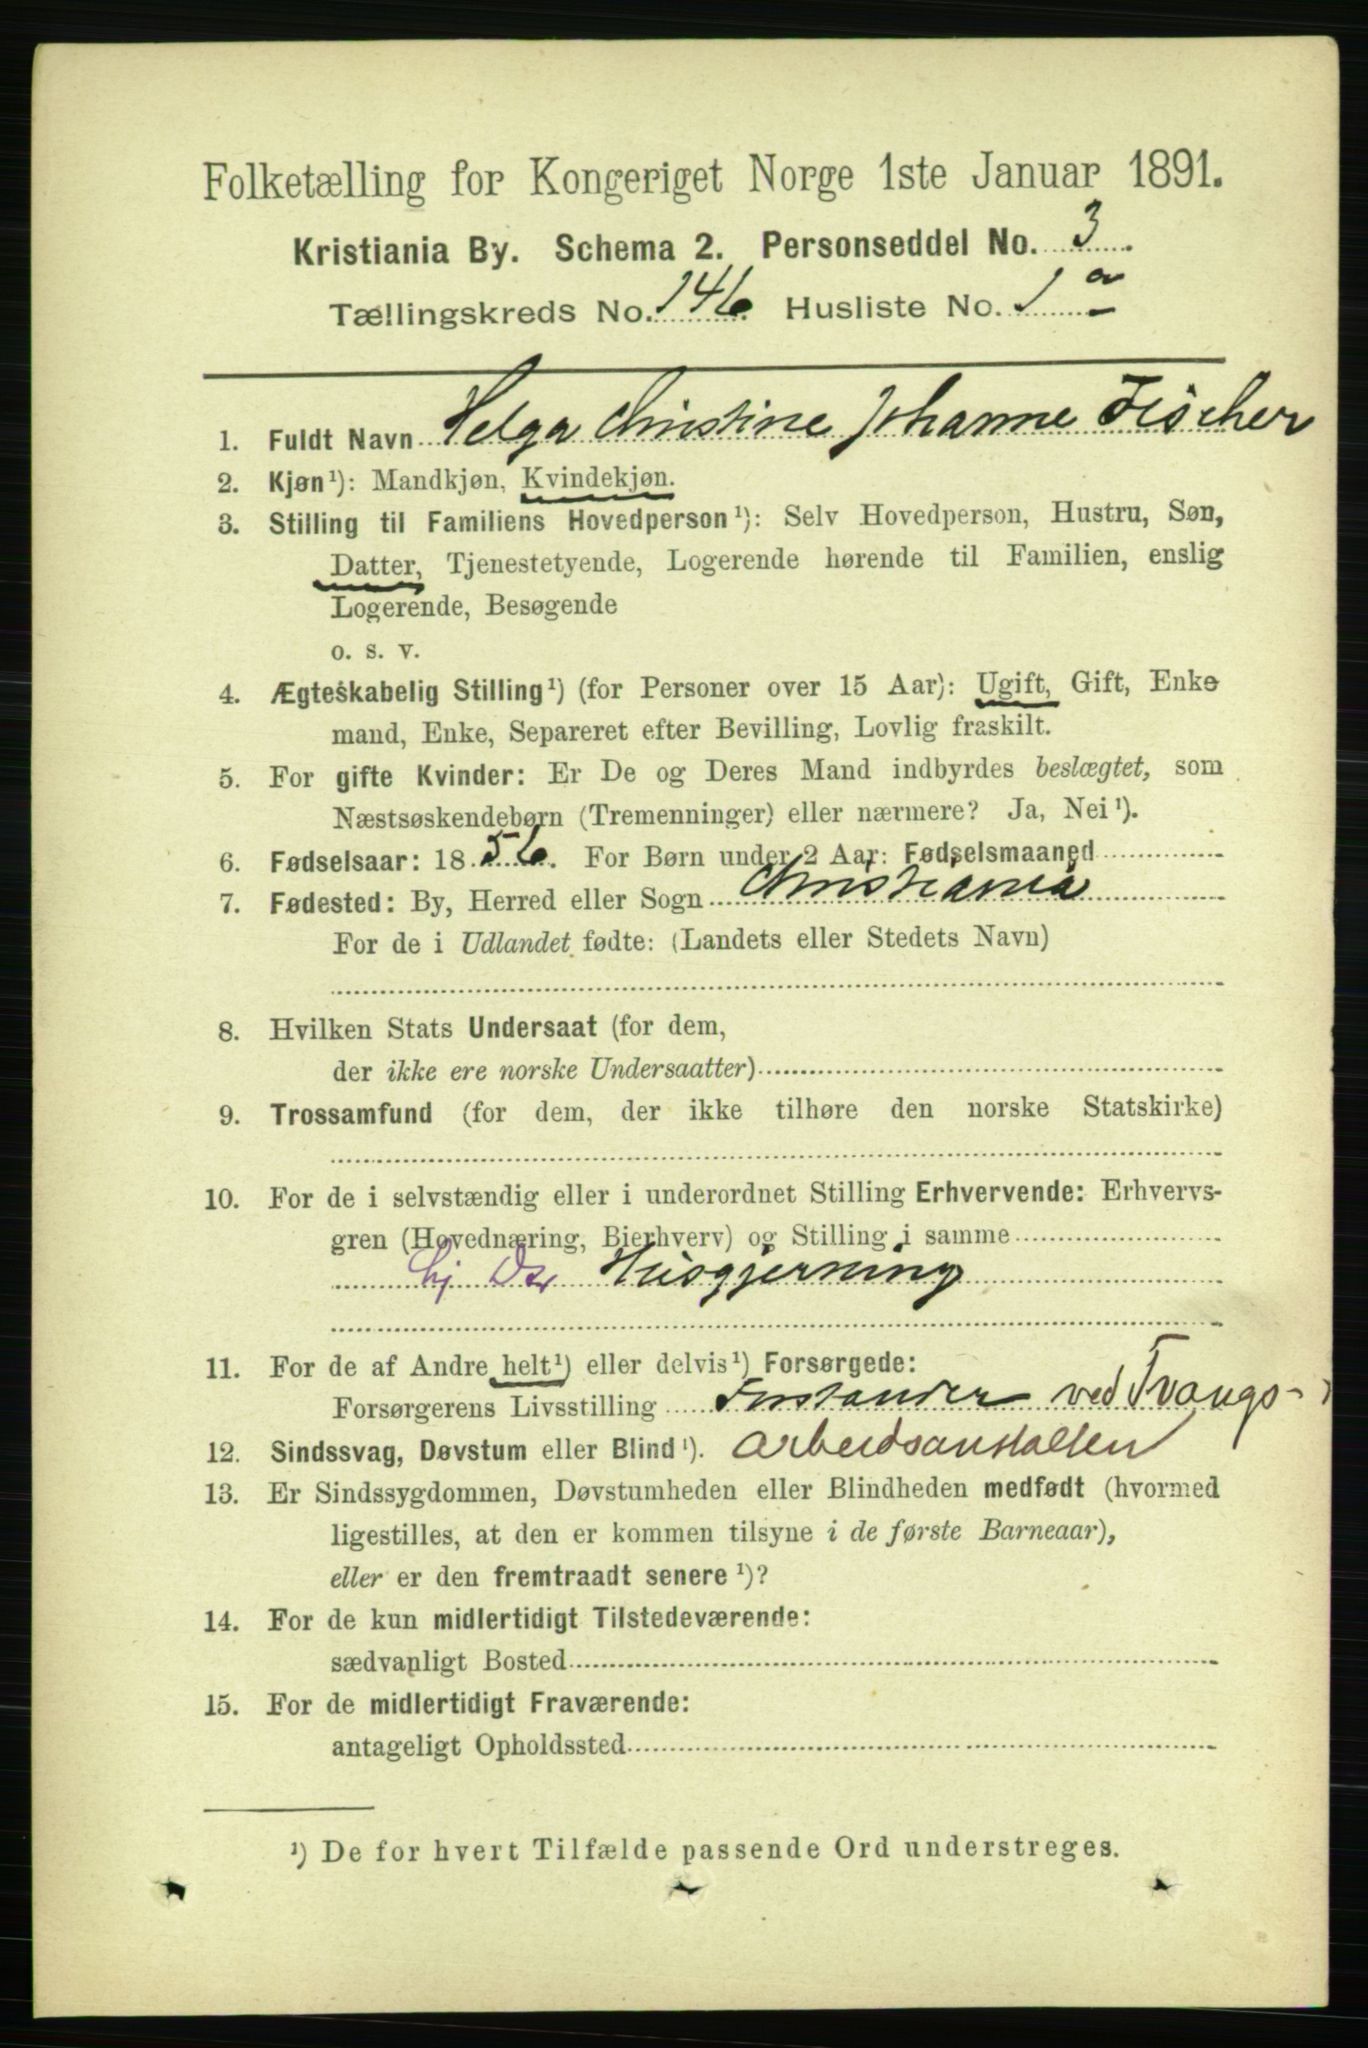 Folketælling for Kongeriget Norge 1ste Januar 1891.
Kristiania By. Schema 2. Personseddel No. 3.
Tællingskreds No. 146 Husliste No. 1 a
1. Fuldt Navn Helga Christine Johanne Fischer
2. Kjøn¹): Mandkjøn, Kvindekjøn.
3. Stilling til Familiens Hovedperson¹): Selv Hovedperson, Hustru, Søn,
Datter, Tjenestetyende, Logerende hørende til Familien, enslig
Logerende, Besøgende
o. s. v.
4. Ægteskabelig Stilling¹) (for Personer over 15 Aar): Ugift, Gift, Enke
mand, Enke, Separeret efter Bevilling, Lovlig fraskilt.
5. For gifte Kvinder: Er De og Deres Mand indbyrdes beslægtet, som
Næstsøskendebørn (Tremenninger) eller nærmere? Ja, Nei¹).
6. Fødselsaar: 1856. For Børn under 2 Aar: Fødselsmaaned
7. Fødested: By, Herred eller Sogn Christiania
For de i Udlandet fødte: (Landets eller Stedets Navn)
8. Hvilken Stats Undersaat (for dem,
der ikke ere norske Undersaatter)
9. Trossamfund (for dem, der ikke tilhøre den norske Statskirke)
10. For de i selvstændig eller i underordnet Stilling Erhvervende: Erhvervs-
gren (Hovednæring, Bierhverv) og Stilling i samme
hj Dr Husgjerning
11. For de af Andre helt¹) eller delvis¹) Forsørgede:
Forsørgerens Livsstilling Forstander ved Tvangs-
12. Sindssvag, Døvstum eller Blind¹). arbeidsanstalten
13. Er Sindssygdommen, Døvstumheden eller Blindheden medfødt (hvormed
ligestilles, at den er kommen tilsyne i de første Barneaar),
eller er den fremtraadt senere¹)?
14. For de kun midlertidigt Tilstedeværende:
sædvanligt Bosted
15. For de midlertidigt Fraværende:
antageligt Opholdssted
¹) De for hvert Tilfælde passende Ord understreges.